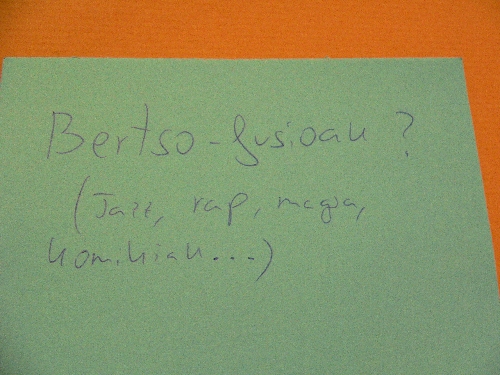 Bertso-fusioak ?
(Jazz, rap, magia,
komikiak...)